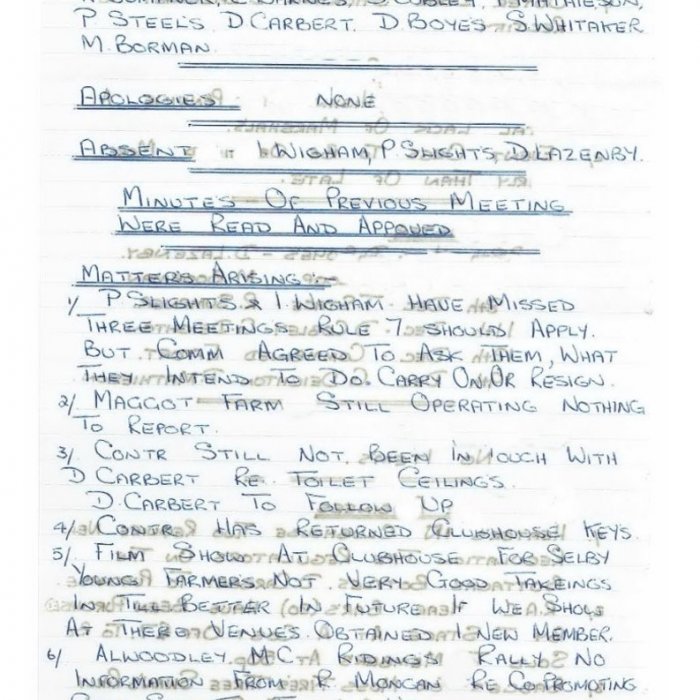 P. STEELS, D CARBERT, D. BOYES S. WHITAKER
M. BORMAN.
APOLOGIES NONE
ABSENT I WIGHAM, P. SLIGHTS, D. LAZENBY.
MINUTES OF PREVIOUS MEETING
WERE READ AND APPOVED
MATTERS ARISING:-
1/ P SLIGHTS & I. WIGHAM. HAVE MISSED
THREE MEETINGS. RULE 7 SHOULD APPLY.
BUT COMM AGREED TO ASK THEM, WHAT
THEY INTEND TO DO. CARRY ON. OR RESIGN.
2/ MAGGOT FARM STILL OPERATING NOTHING
TO REPORT.
3/ CONTR STILL NOT BEEN IN TOUCH WITH
D CARBERT RE. TOILET CEILINGS.
D. CARBERT TO FOLLOW UP
4/ CONTR HAS RETURNED CLUBHOUSE KEYS.
5/ FILM SHOW AT CLUBHOUSE FOR SELBY
YOUNG FARMERS NOT VERY GOOD TAKEINGS
IN TILL BETTER IN FUTURE IF WE SHOW
AT THERE VENUES. OBTAINED 1 NEW MEMBER.
6/ ALWOODLEY M.C RIDINGS RALLY NO
INFORMATION FROM R. MORGAN RE CO-PROMOTING.